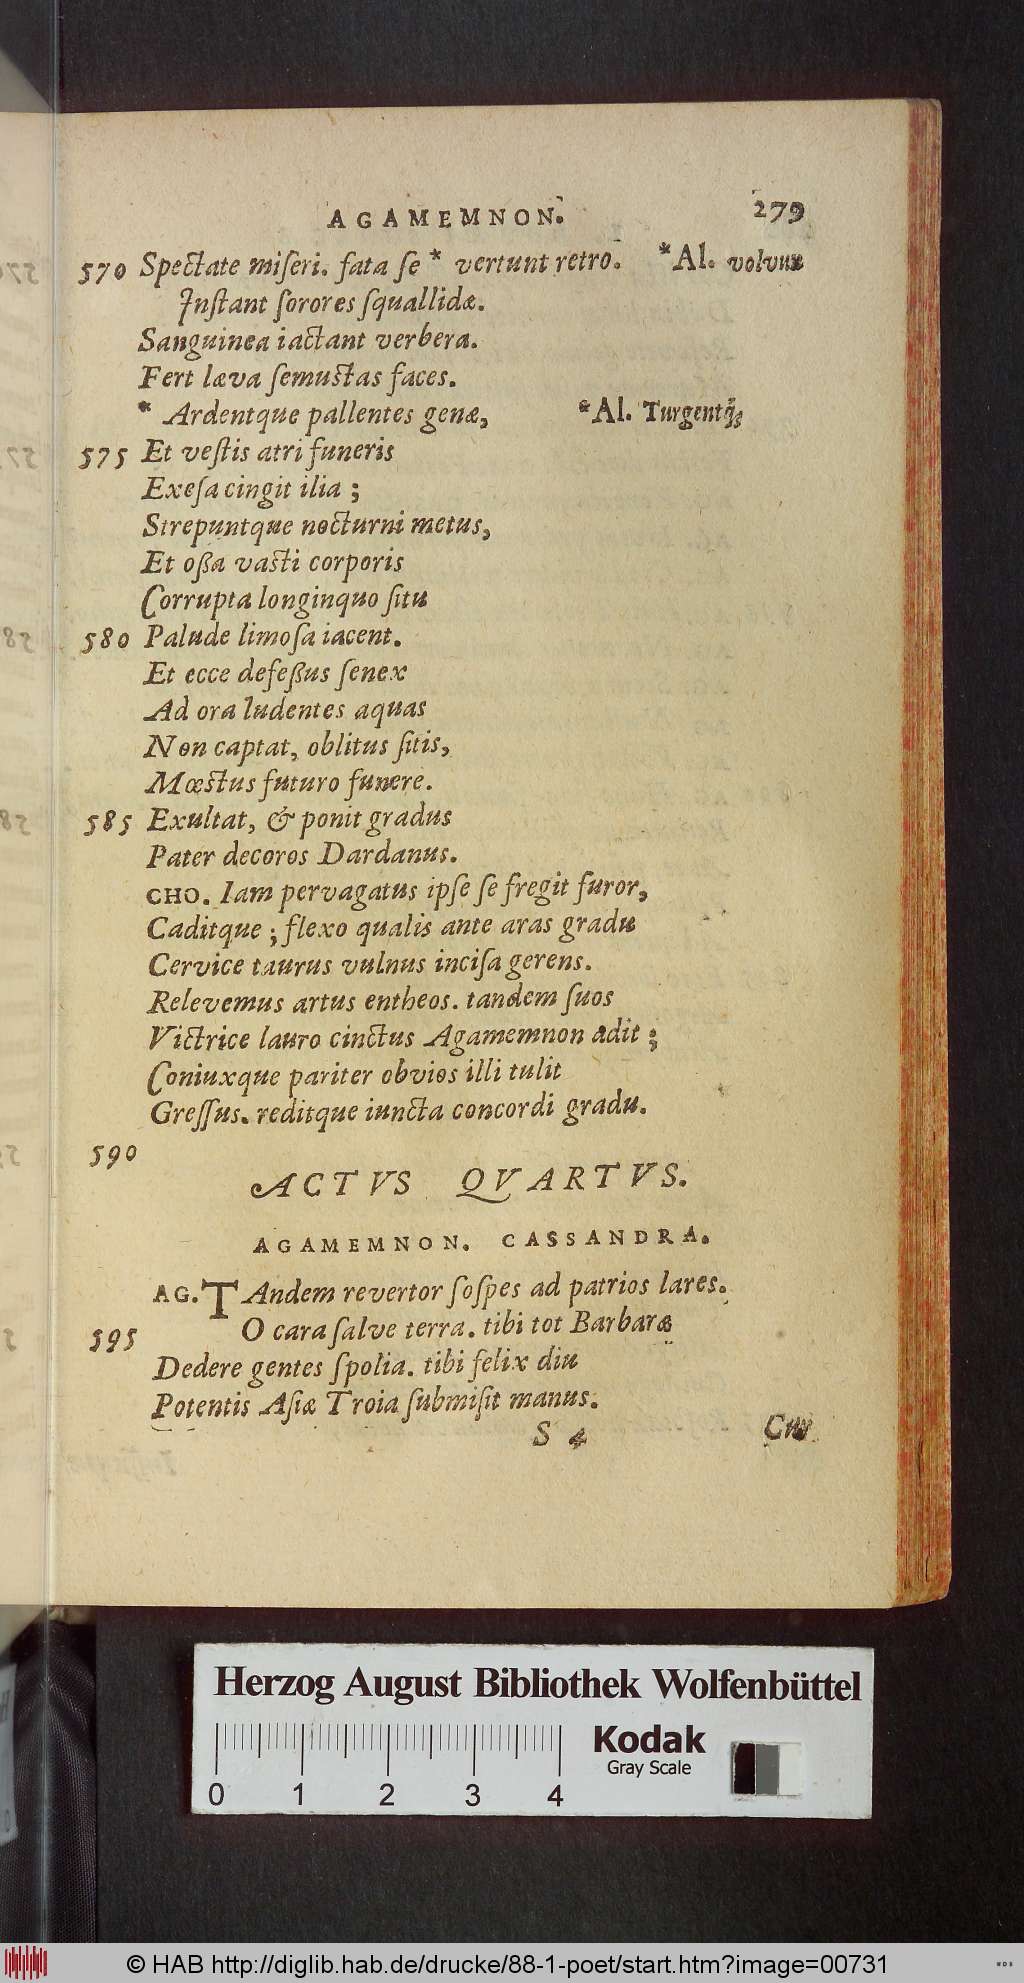 AGAMEMNON. 279
570 Spectate miſeri. fata ſe * vertunt retro. *Al. volvunt
Inſtant ſorores ſquallidæ.
Sanguinea iactant verbera.
Fert læva ſemuſtas faces.
* Ardentque pallentes genæ, *Al. Turgentq́;
575 Et veſtis atri funeris
Exeſa cingit ilia ;
Strepuntque nocturni metus,
Et oßa vaſti corporis
Corrupta longinquo ſitu
580 Palude limoſa iacent.
Et ecce defeßus ſenex
Ad ora ludentes aquas
Non captat, oblitus ſitis,
Mœſtus futuro funere.
585 Exultat, & ponit gradus
Pater decoros Dardanus.
CHO. Iam pervagatus ipſe ſe fregit furor,
Caditque ; flexo qualis ante aras gradu
Cervice taurus vulnus inciſa gerens.
Relevemus artus entheos. tandem ſuos
Victrice lauro cinctus Agamemnon adit ;
Coniuxque pariter obvios illi tulit
Greſſus. reditque iuncta concordi gradu.
590
ACTVS QVARTVS.
AGAMEMNON. CASSANDRA.
AG. TAndem revertor ſoſpes ad patrios lares.
O cara ſalve terra. tibi tot Barbaræ
595
Dedere gentes ſpolia. tibi felix diu
Potentis Aſiæ Troia ſubmiſit manus.
S 4
Herzog August Bibliothek Wolfenbüttel
Kodak
Gray Scale
0 1 2 3 4
© HAB http://diglib.hab.de/drucke/88-1-poet/start.htm?image=00731